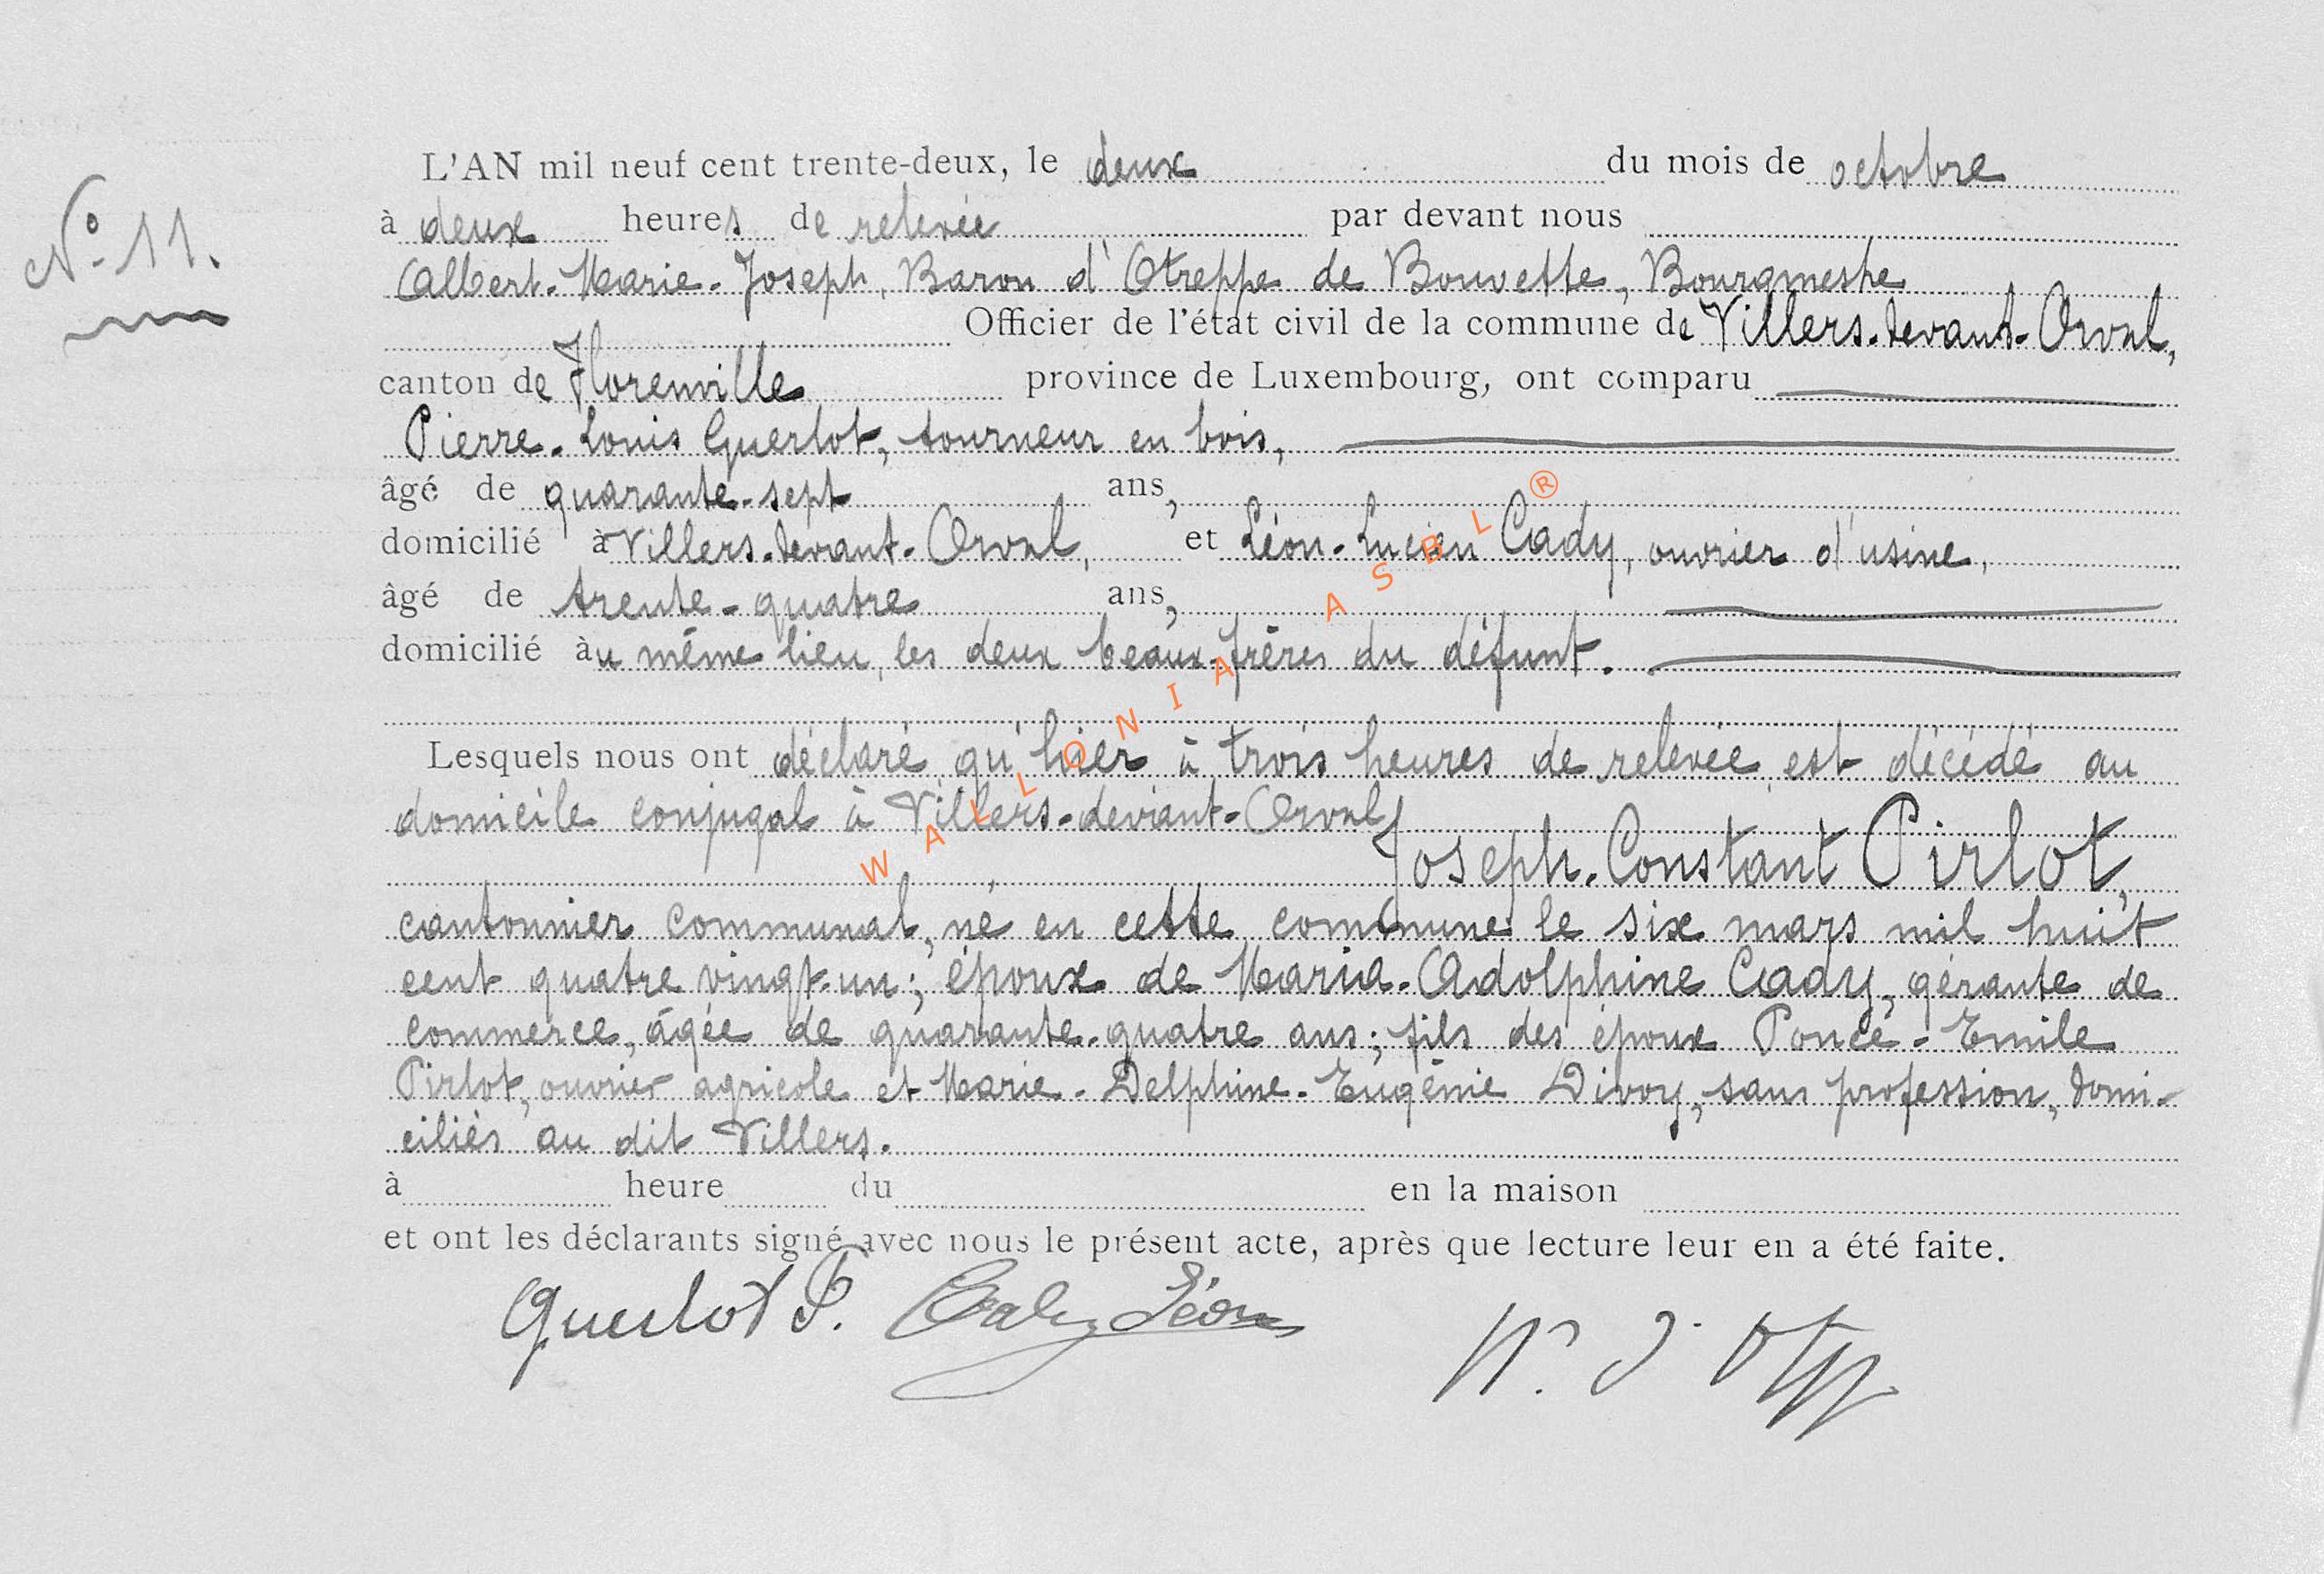 N° 11.
L'AN mil neuf cent trente-deux, le deux du mois de octobre
à deux heures de relevée par devant nous
Albert-Marie-Joseph, Baron d'Otreppe de Bouvette, Bourgmestre
Officier de l'état civil de la commune de Villers-devant-Orval,
canton de Florenville province de Luxembourg, ont comparu
Pierre-Louis Guerlot, tourneur en bois,
âgé de quarante-sept ans,
domicilié à Villers-devant-Orval, et Léon-Lucien Cady, ouvrier d'usine,
âgé de trente-quatre ans,
domicilié au même lieu, les deux beaux-frères du défunt.
Lesquels nous ont déclaré qu'hier à trois heures de relevée, est décédé au
domicile conjugal à Villers-devant-Orval,
Joseph-Constant Pirlot,
cantonnier communal, né en cette commune le six mars mil huit
cent quatre vingt-un; époux de Maria-Adolphine Cady, gérante de
commerce, âgée de quarante-quatre ans; fils des époux Poncé-Emile
Pirlot, ouvrier agricole et Marie-Delphine-Eugénie Divoy, sans profession, domi-
ciliés au dit Villers.
à heure du en la maison
et ont les déclarants signé avec nous le présent acte, après que lecture leur en a été faite.
Guerlot P. Cady Léon
WALLONIA ASBL ®